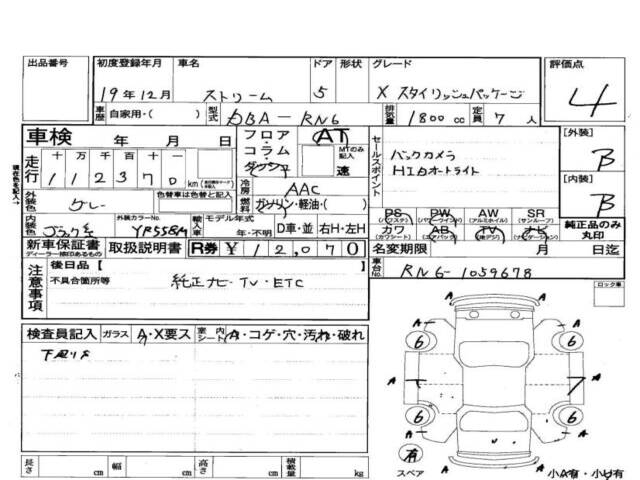 出品番号 初度登録年月 車名 ドア 形状 グレード 評価点
19年12月 ストリーム 5 X スタイリッシュパッケージ 4
車歴 自家用・( ) 型式 DBA-RN6 排気量 1800 cc 定員 7 人
車検 年 月 日
フロア・コラム・ダッシュ AT MTのみ記入 速
セールスポイント バックカメラ
HIDオートライト
[外装] B
[内装] B
走行 十 万 千 百 十 一
112370 km
冷房 AAC
燃料 ガソリン・軽油・( )
外装色 グレー 色替車は色替と記入
内装色 ブラック系 外装カラーNo. YR558M 輸入車 モデル年式 年・不明 D車・並 右H・左H
PS (パワステ) PW (パワーウインド) AW (アルミホイル) SR (サンルーフ)
カワ (カワシート) AB (エアバック) TV (地デジ) ナビ (ナビゲーション)
純正品のみ丸印
新車保証書 ディーラー捺印あるもの 取扱説明書 R券 ¥12,070
名変期限 月 日迄
車台No. RN6-1059678
注意事項 後日品 [ ]
不具合箇所等 純正ナビ・TV・ETC
ロック車
検査員記入 ガラス A・X要ス 室内シート A・コゲ・穴・汚れ・破れ
下廻りS
A A
6 6
A A A A
6 6
A A
有
スペア A 小A有・小U有
長さ cm 幅 cm 高さ cm 積載量 kg